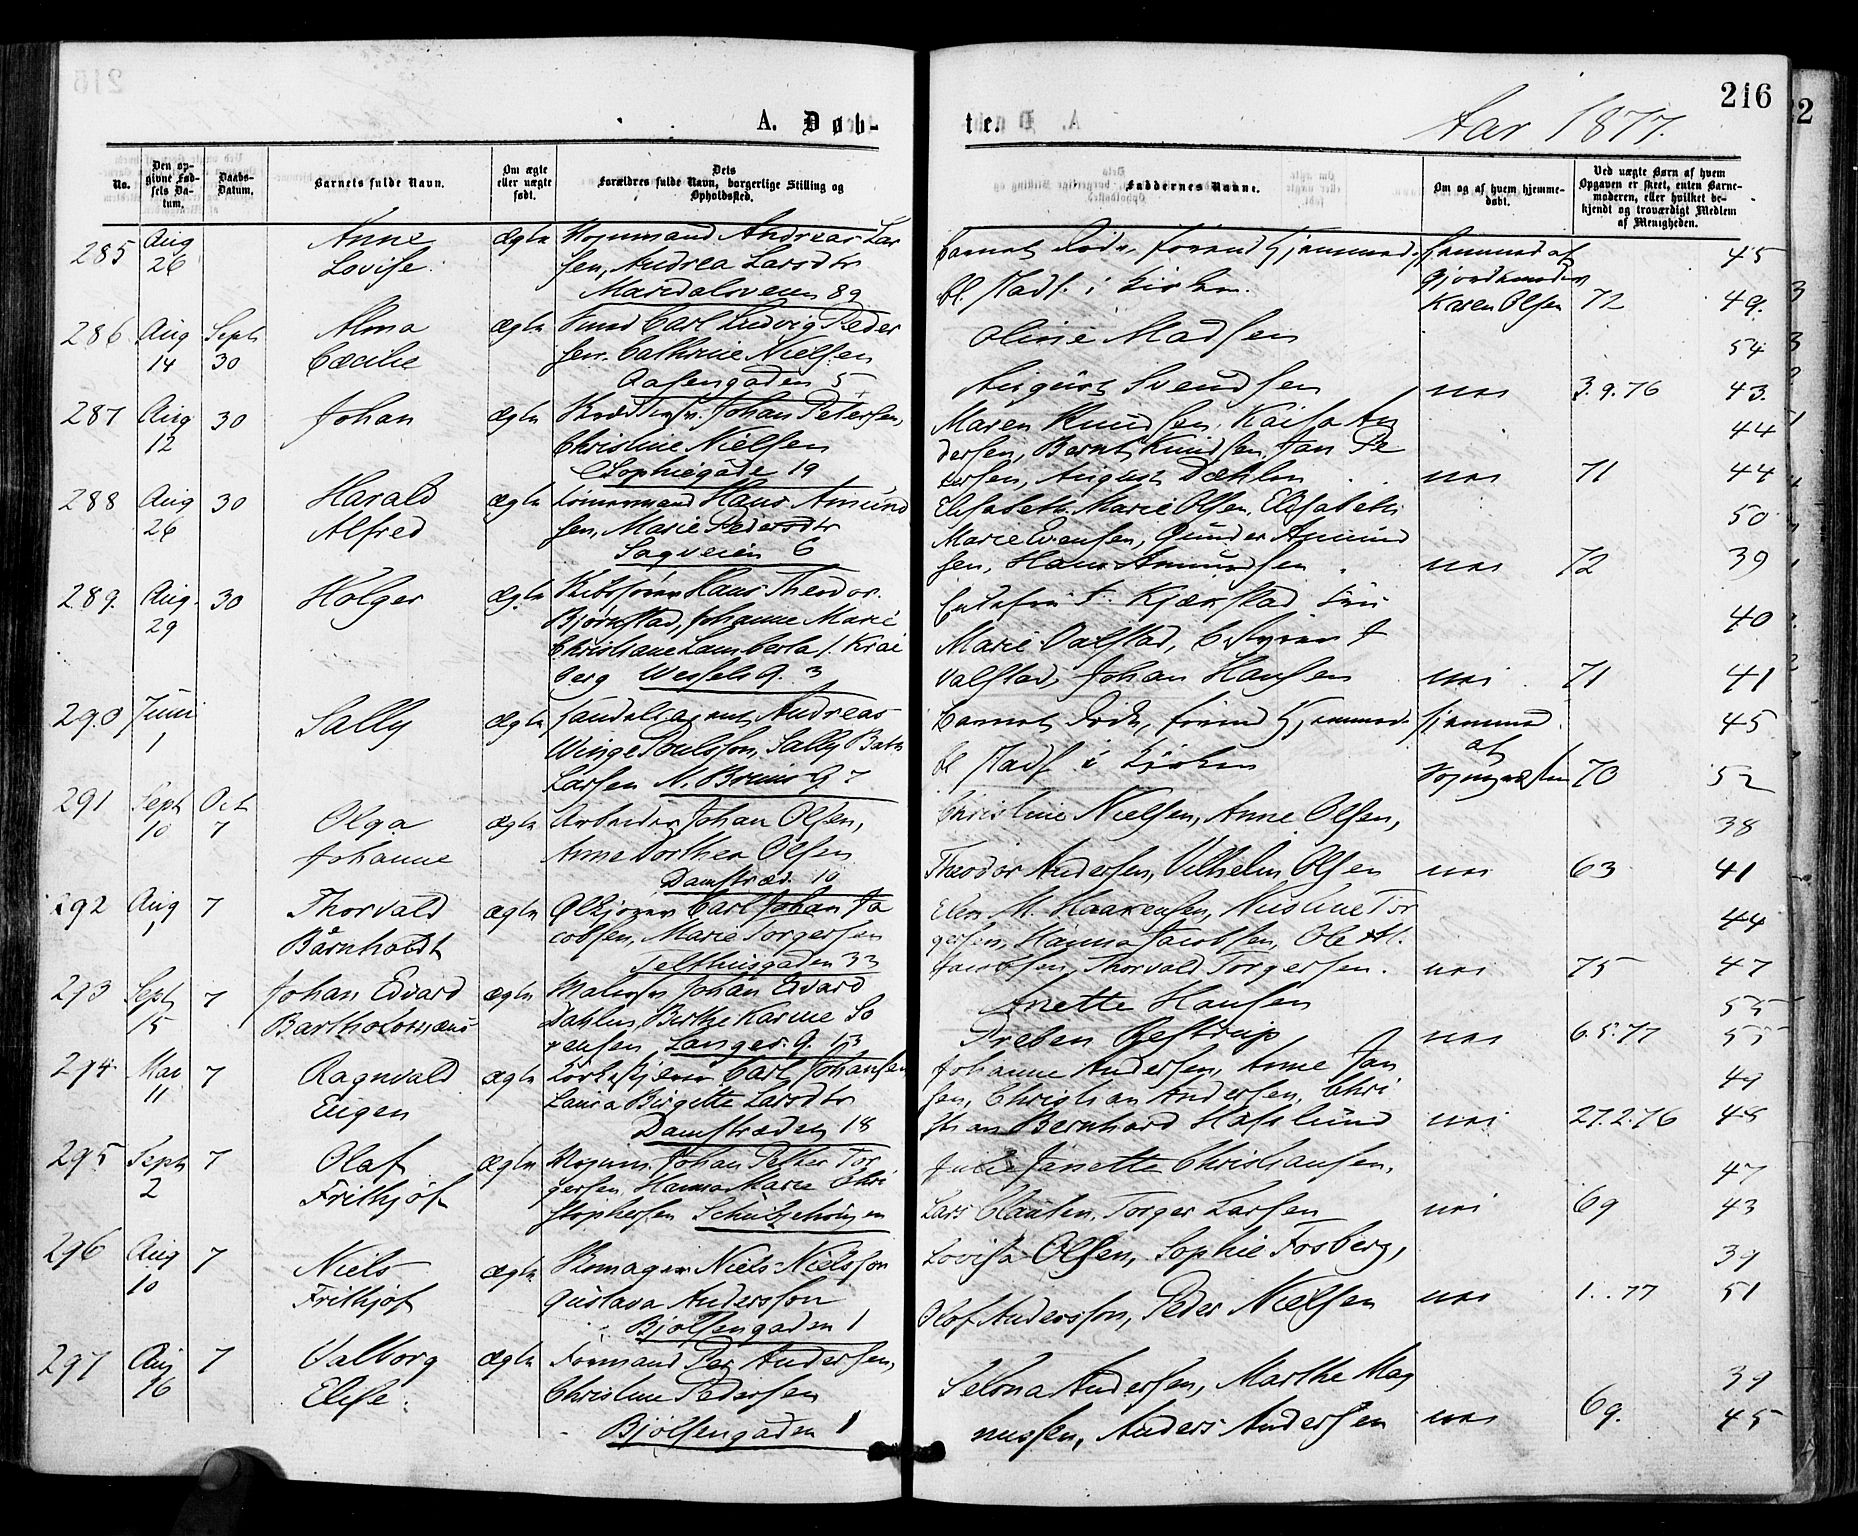 216
A. Døb-
te.
Aar 1877.
No.
Den op-
givne Fød-
sels Da-
tum.
Daabs-
Datum.
Barnets fulde Navn.
Om ægte
eller uægte
født.
Dets
Forældres fulde Navn, borgerlige Stilling og
Opholdssted.
Faddernes Navne.
Om og af hvem hjemme-
døbt.
Ved uægte Børn af hvem
Opgaven er skeet, enten Barne-
moderen, eller hvilket be-
kjendt og troværdigt Medlem
af Menigheden.
285 Aug Anne ægte Vognmand Andreas Lar 45
26 Lovise sen, Andrea Larsdtr
Maridalsveien 89 Karen Olsen 72 49.
286 Aug Sept Alma ægte Carl Ludvig Peder Oline Madsen 54
14 30 Cæcilie sen. Cathrine Nielsen
Aasengaden 5 August Svendsen nei 3.9.76 43.
287 Aug 30 Johan ægte Johan Petersen, Maren Knudsen, Kaisa An 44
12 Christine Nielsen dersen, Bernt Knudsen, Jan Pe
Sophiegade 19 tersen, August Dæhlen nei 71 44
288 Aug 30 Harald ægte Hans Amund Elisabeth Marie Olsen, Elisabeth 50
26 Alfred sen, Marie Pedersdtr Marie Evensen, Gunder Amund
Sagveien 6 sen, Hans Amundsen nei 72 39
289. Aug 30 Holger ægte Hans Theodor
29 Bjørnstad, Johanne Marie 40
Christiane Lamberta f. Krai Marie Valstad,
berg Wessels G. 3 Valstad, Johan Hansen nei 71 41
290 Juni Sally ægte Andreas 45
1 Winge Poulsson, Sally Bath
Larsen N. Bruns G. 7 i Kirken 70 52
291 Sept Oct Olga ægte Arbeider Johan Olsen, Christine Nielsen, Anne Olsen, 38
10 7 Johanne Anne Dorthea Olsen
Damstræd. 10 Theodor Andersen, Vilhelm Olsen nei 63 41
292 Aug 7 Thorvald ægte Carl Johan Ja Elen M. Haakensen, Nusine Tor 44
1 Bårnholdt cobsen, Marie Torgersen gersen, Hanna Jacobsen, Ole M.
Telthusgaden 33 Jacobsen, Thorvald Torgersen. nei 75 47
293 Sept 7 Johan Edvard ægte Malersv. Johan Edvard Anette Hansen 55
15 Bartholomæus Dahlen, Birthe Karine So
rensen, Langes G. 13 Preben Restrup nei 6.5.77 55
294 Mai 7 Ragnvald ægte Carl Johansen Johanne Andersen, Anne Jan 49
11 Eugen Laura Birgitte Larsdtr sen, Christian Andersen, Chri
Damstræden 18 stian Bernhard Haslund nei 27.2.76 48
295 Sept 7 Olaf ægte Vognm. Johan Petter Tor Julie Janette Christiansen, 47
2 Frithjof gersen, Hanna Marie Chri
stophersen Schultzehaugen Lars Clausen, Torger Larsen nei 69 43
296 Aug 7 Niels ægte Skomager Niels Nielsson Lovisa Olsen, Sophie Fosberg, 39
10 Frithjof Gustava Andersson
Bjølsengaden 1 Olof Andersson, Peder Nielsen nei 1..77 51
297 Aug 7 Valborg ægte Formand Per Andersen, Selma Andersen, Marthe Mag 39
16 Elise. Christine Pedersen
Bjølsengaden 1 nussen, Anders Andersen nei 69. 45